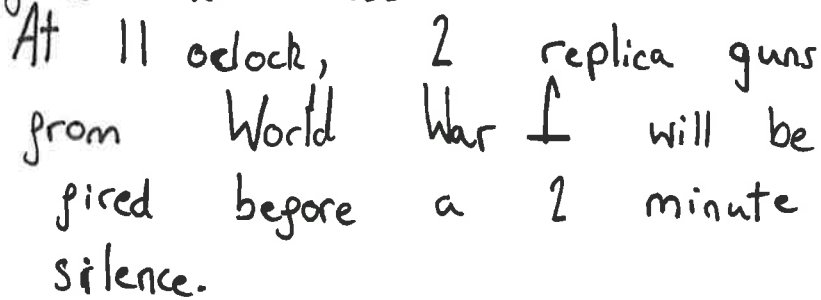 At 11 oclock, 2 replica guns
from World War I will be
fired before a 2 minute
silence.